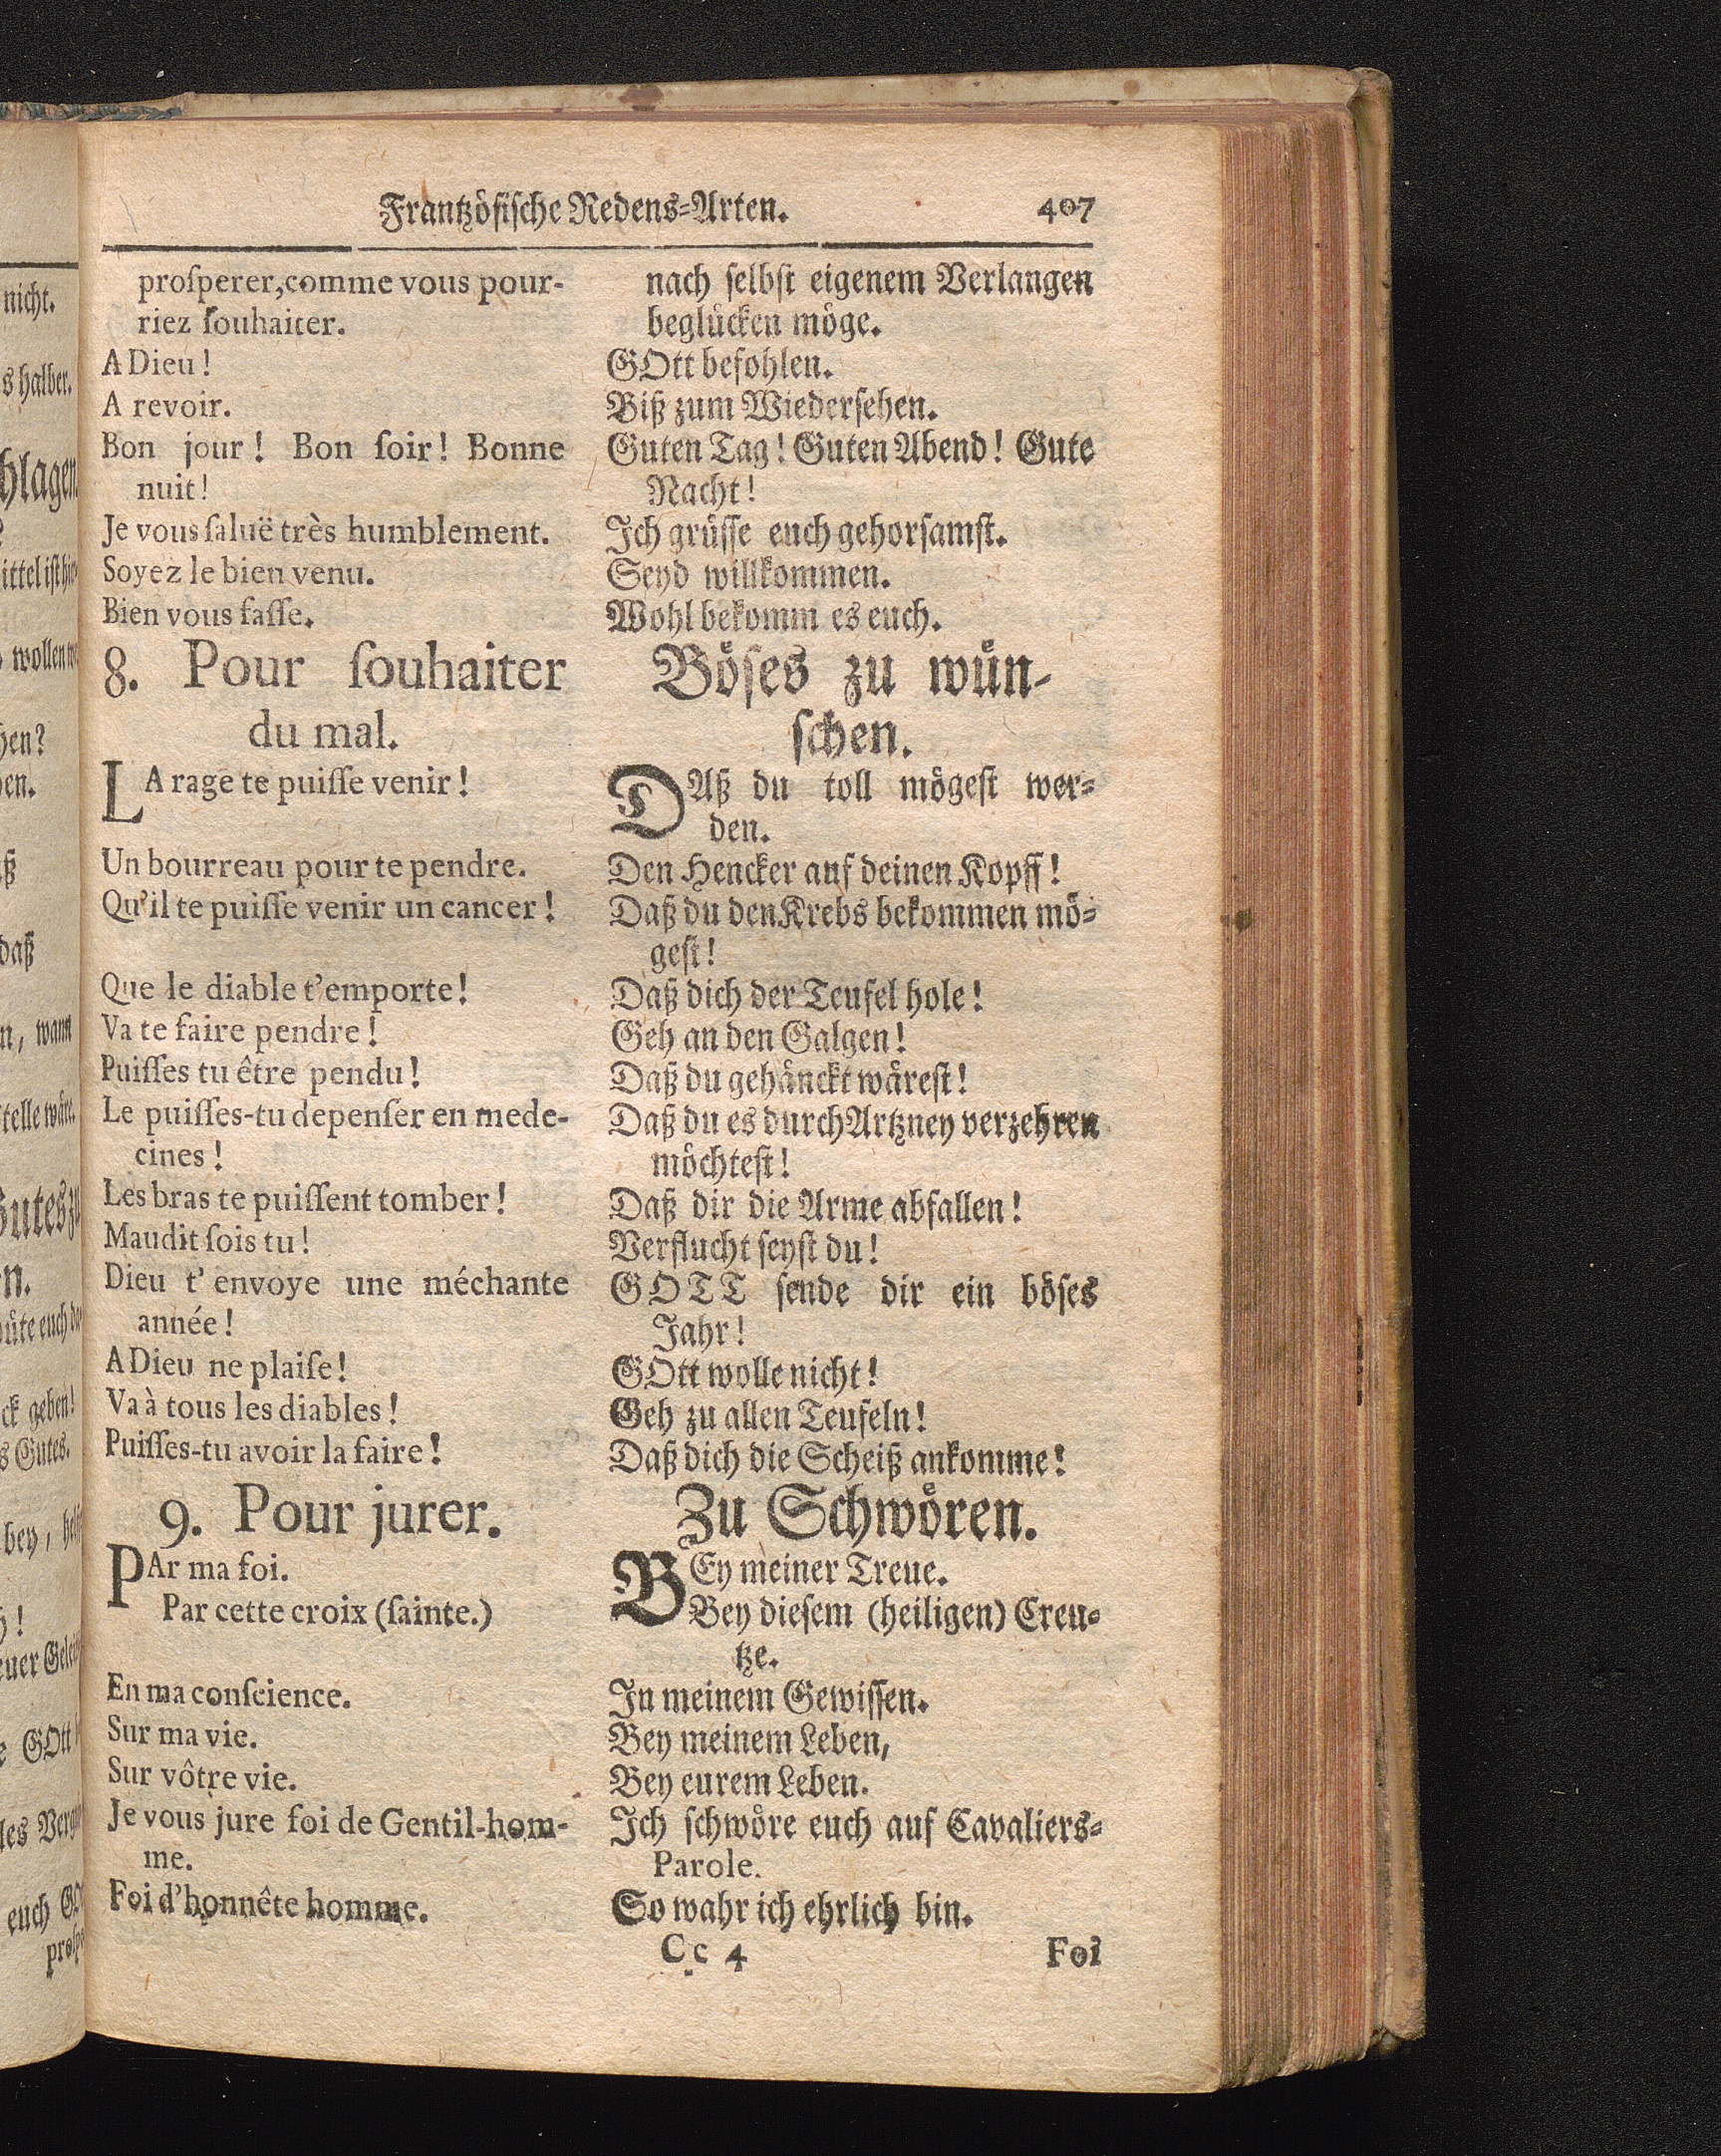 Frantzösische Redens-Arten. 407
proſperer, comme vous pour-
riez ſouhaiter.
A Dieu!
A revoir.
Bon jour! Bon ſoir! Bonne
nuit!
Je vous ſaluë très humblement.
Soyez le bien venu.
Bien vous faſſe.
8. Pour ſouhaiter
du mal.
LA rage te puiſſe venir!
Un bourreau pour te pendre.
Qu'il te puiſſe venir un cancer!
Que le diable t'emporte!
Va te faire pendre!
Puiſſes tu être pendu!
Le puiſſes-tu depenſer en mede-
cines!
Les bras te puiſſent tomber!
Maudit ſois tu!
Dieu t' envoye une méchante
année!
A Dieu ne plaiſe!
Va à tous les diables!
Puiſſes-tu avoir la faire!
9. Pour jurer.
PAr ma foi.
Par cette croix (ſainte.)
En ma conſcience.
Sur ma vie.
Sur vôtre vie.
Je vous jure foi de Gentil-hom-
me.
Foi d'honnête homme.
nach ſelbſt eigenem Verlangen
beglücken möge.
GOtt befohlen.
Biß zum Wiederſehen.
Guten Tag! Guten Abend! Gute
Nacht!
Ich grüſſe euch gehorſamſt.
Seyd willkommen.
Wohl bekomm es euch.
Böſes zu wün-
ſchen.
DAß du toll mögeſt wer-
den.
Den Hencker auf deinen Kopff!
Daß du den Krebs bekommen mö-
geſt!
Daß dich der Teufel hole!
Geh an den Galgen!
Daß du gehänckt wäreſt!
Daß du es durch Artzney verzehren
möchteſt!
Daß dir die Arme abfallen!
Verflucht ſeyſt du!
GOTT ſende dir ein böſes
Jahr!
GOtt wolle nicht!
Geh zu allen Teufeln!
Daß dich die Scheiß ankomme!
Zu Schwören.
BEy meiner Treue.
Bey dieſem (heiligen) Creu-
tze.
In meinem Gewiſſen.
Bey meinem Leben,
Bey eurem Leben.
Ich ſchwöre euch auf Cavaliers-
Parole.
So wahr ich ehrlich bin.
Cc 4 Foi